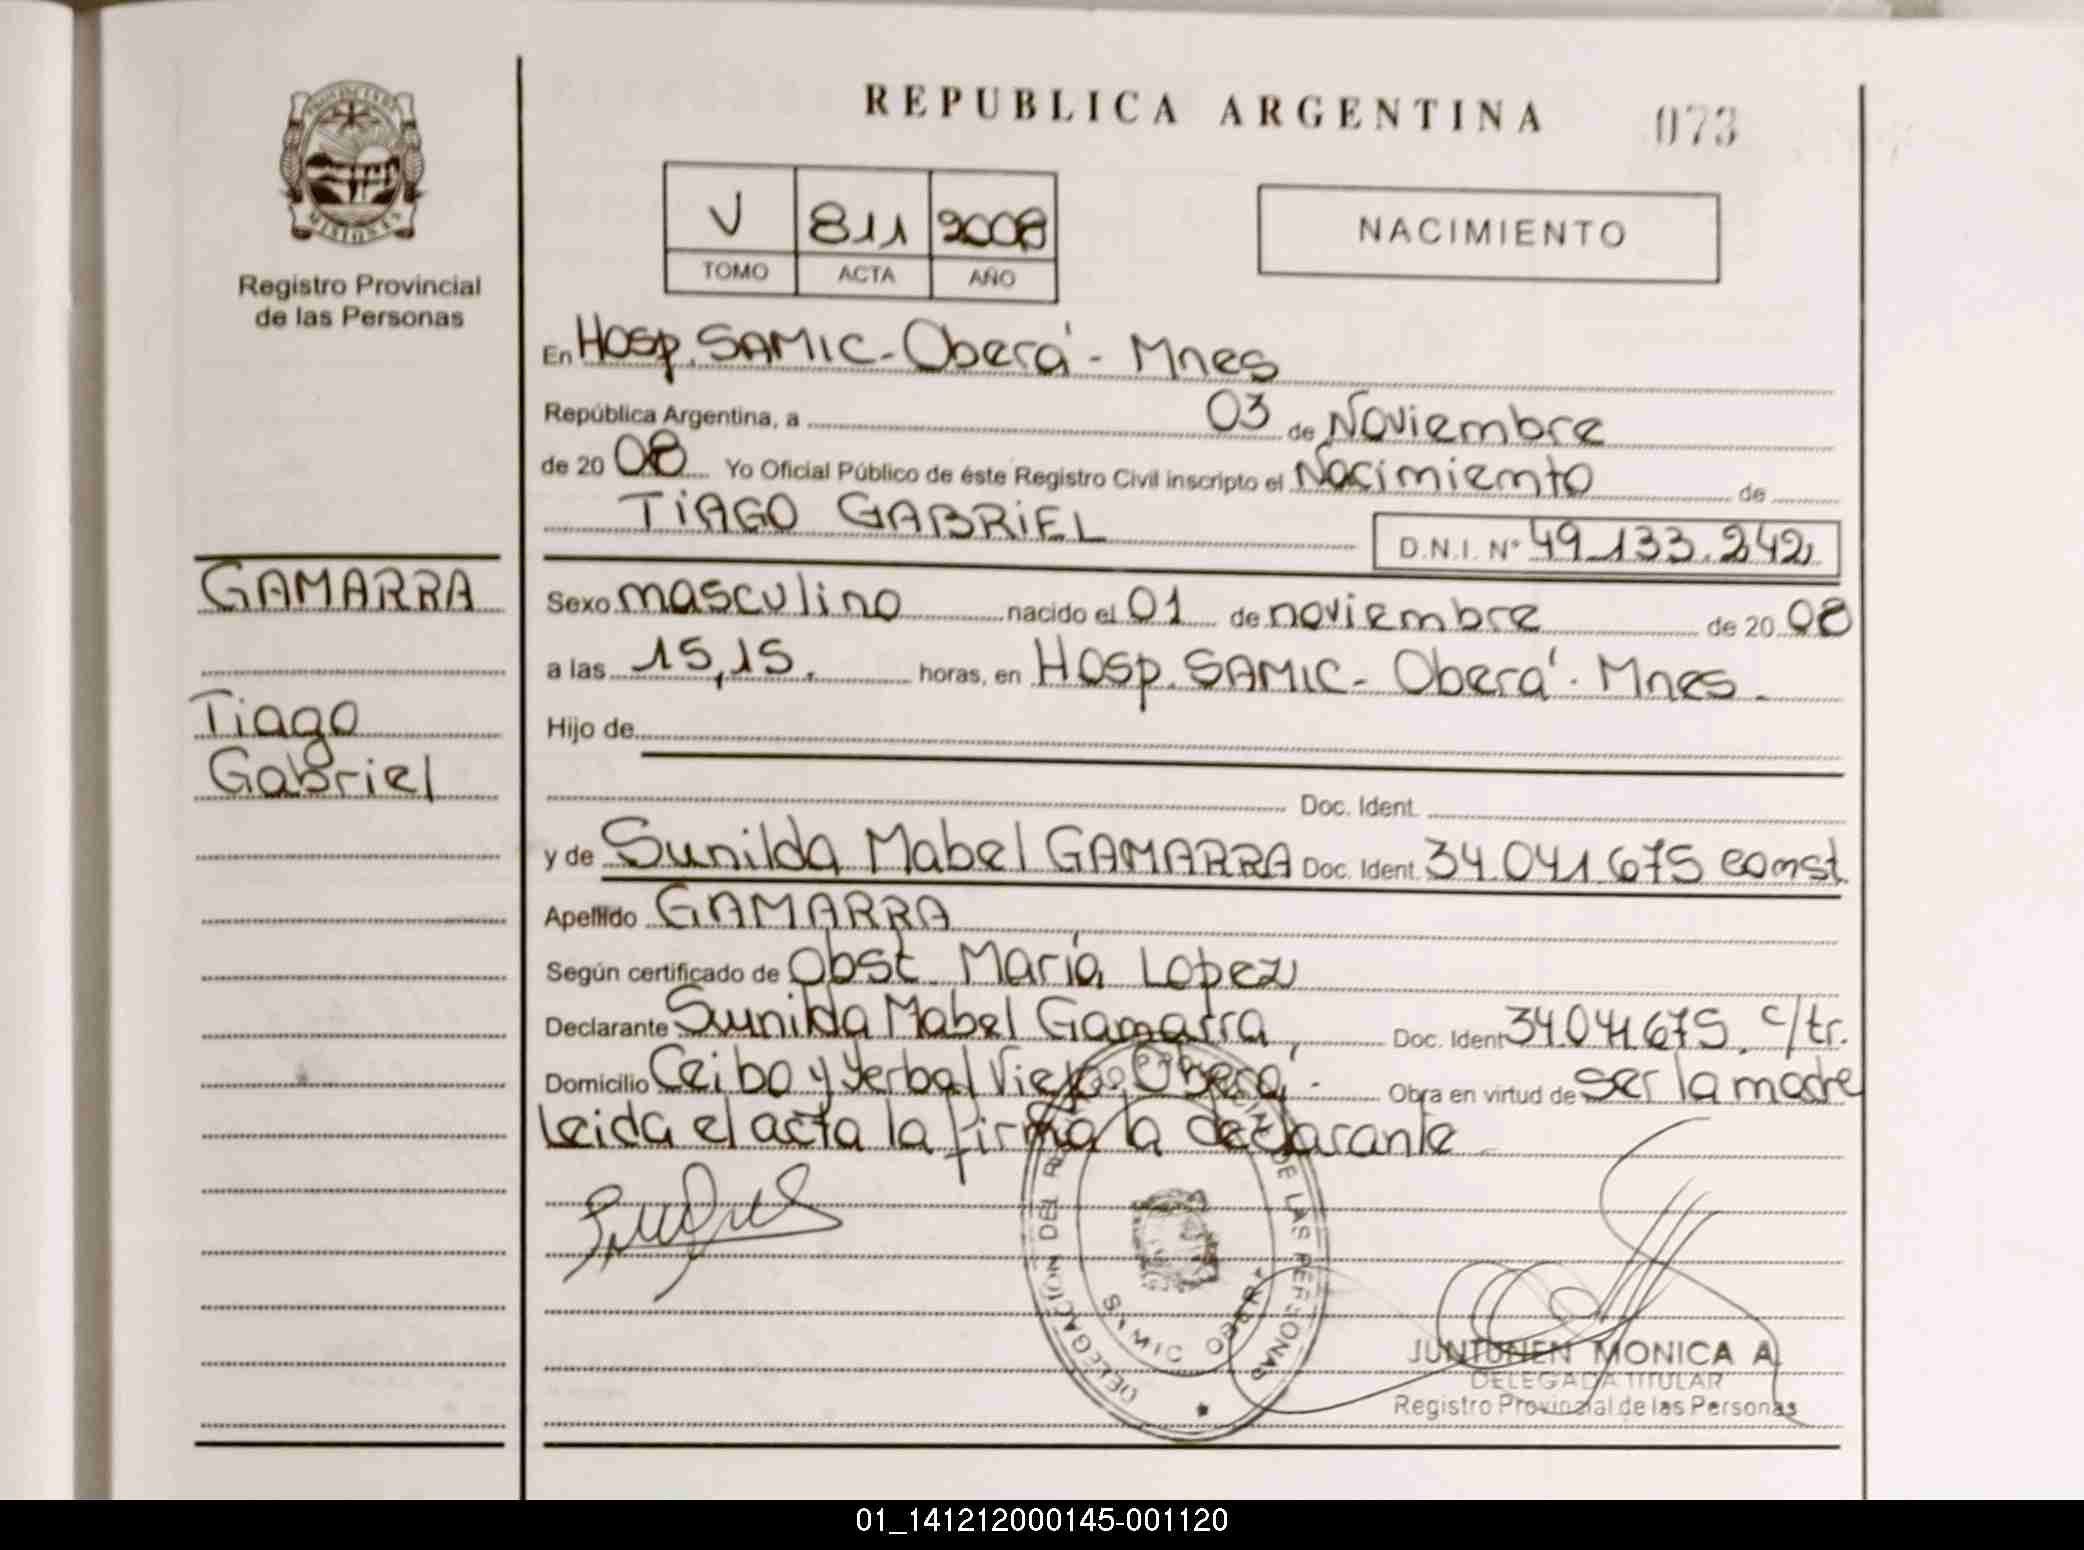 REPUBLICA ARGENTINA
073
PROVINCIA DE
MISIONES
Registro Provincial
de las Personas
V 811 2008
TOMO ACTA AÑO
NACIMIENTO
En Hosp. SAMIC - Oberá - Mnes
República Argentina, a 03 de Noviembre
de 20 08 Yo Oficial Público de éste Registro Civil inscripto el Nacimiento de
TIAGO GABRIEL D.N.I. Nº 49.133.242
GAMARRA
Tiago
Gabriel
Sexo masculino nacido el 01 de noviembre de 20 08
a las 15,15. horas, en Hosp. SAMIC - Oberá - Mnes.
Hijo de
Doc. Ident.
y de Sunilda Mabel GAMARRA Doc. Ident. 34.041.675 const
Apellido GAMARRA
Según certificado de Obst. María Lopez
Declarante Sunilda Mabel Gamarra, Doc. Ident 34.041.675. c/tr.
Domicilio Ceibo y Yerbal Viejo. Oberá - Obra en virtud de ser la madre
Leida el acta la firma la declarante
DELEGACIÓN DEL REG. PROVINCIAL DE LAS PERSONAS
SAMIC OBERA
JUNTUNEN MONICA A.
DELEGADA TITULAR
Registro Provincial de las Personas
01_141212000145-001120